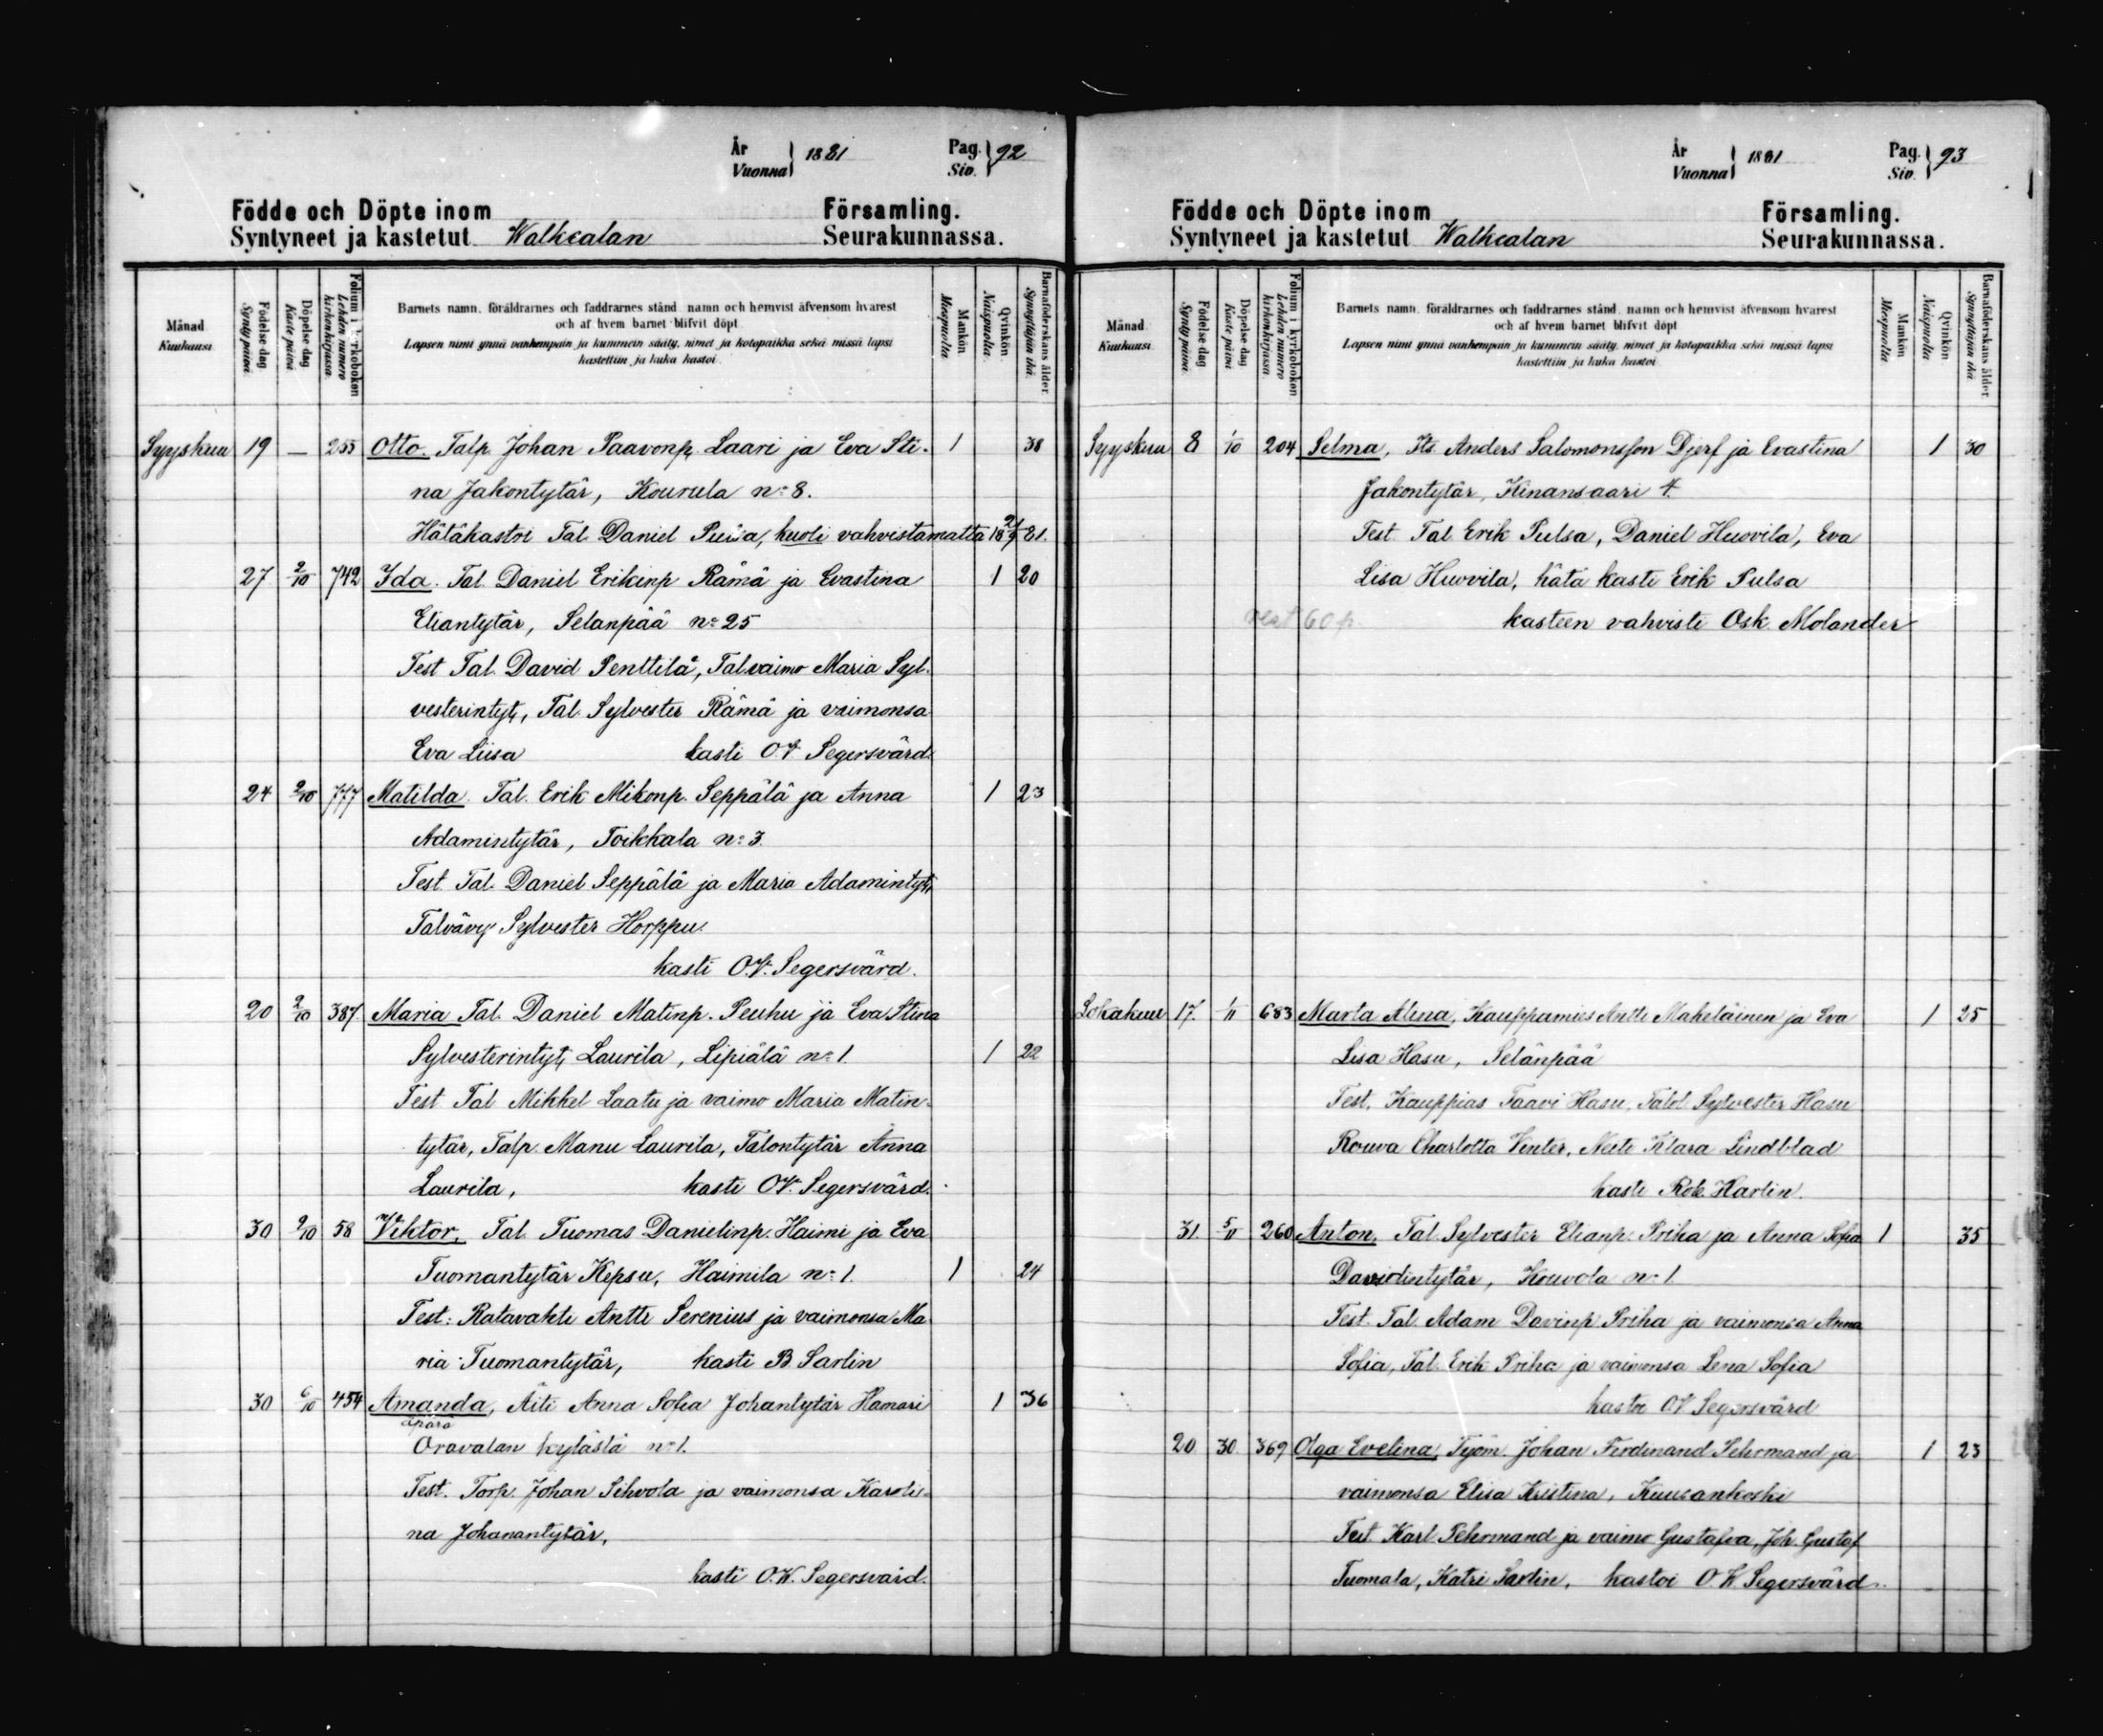 År
Vuonna } 1881
Pag.
Siv. } 92
Födde och Döpte inom Församling.
Syntyneet ja kastetut Walkealan Seurakunnassa.
Månad
Kuukausi
Födelse dag
Synty päivä.
Döpelse dag
Kaste päivä
Folium i kyrkoboken
Lehden numero
kirkonkirjassa.
Barnets namn, föräldrarnes och faddrarnes stånd, namn och hemvist äfvensom hvarest
och af hvem barnet blifvit döpt
Lapsen nimi ynnä vanhempain ja kummein sääty, nimet ja kotopaikka sekä missä lapsi
kastettiin ja kuka kastoi.
Mankön
Miespuolta
Qvinkön
Naispuolta.
Barnaföderskans ålder
Synnyttäjän ikä.
Syyskuu 19 — 255 Otto. Talp. Johan Paavonp. Laari ja Eva Sti- 1 38
na Jakontytär, Kourula n:o 8.
Hätäkastoi Tal. Daniel, kuoli vahvistamatta 18 21/9 81.
27 2/10 742 Ida. Tal. Daniel Erikinp Rämä ja Evastina 1 20
Eliantytär, Selanpää n:o 25
Test Tal. David Penttilä, Tal.vaimo Maria Syl-
vesterintyt, Tal. Sylvester Rämä ja vaimonsa
Eva Liisa kasti O.V. Segersvärd
24 2/10 777 Matilda. Tal. Erik Mikonp. Seppälä ja Anna 1 23
Adamintytär, Toikkala n:o 3.
Test. Tal. Daniel Seppälä ja Maria Adamintyt,
Talvävy Sylvester Horppu.
kasti O.V. Segersvärd.
20 2/10 387 Maria Tal. Daniel Matinp. Peuhu ja Eva Stina
Sylvesterintyt, Laurila, Lipiälä n:o 1. 1 22
Test Tal Mikkel Laatu ja vaimo Maria Matin-
tytär, Talp. Manu Laurila, Talontytär Anna
Laurila, kasti O.V. Segersvärd.
30 2/10 58 Viktor, Tal. Tuomas Danielinp. Haimi ja Eva
Tuomantytär Kepsu, Haimila n:o 1. 1 24
Test: Ratavahti Antti Serenius ja vaimonsa Ma
ria Tuomantytär, kasti B Sarlin
30 6/10 454 Amanda, Äiti Anna Sofia Johantytär Hamari 1 36
äpärä
Oravalan kylästä n:o 1.
Test. Torp. Johan Sihvola ja vaimonsa Karoli-
na Johanantytär,
kasti O.V. Segersvärd.
År
Vuonna } 1881
Pag.
Siv. } 93
Födde och Döpte inom Församling.
Syntyneet ja kastetut Walkealan Seurakunnassa.
Månad
Kuukausi
Födelse dag
Synty päivä.
Döpelse dag
Kaste päivä
Folium i kyrkoboken
Lehden numero
kirkonkirjassa.
Barnets namn, föräldrarnes och faddrarnes stånd, namn och hemvist äfvensom hvarest
och af hvem barnet blifvit döpt
Lapsen nimi ynnä vanhempain ja kummein sääty, nimet ja kotopaikka sekä missä lapsi
kastettiin ja kuka kastoi
Mankön
Miespuolta.
Qvinkön
Naispuolta
Barnaföderskans ålder.
Synnyttäjän ikä
Syyskuu 8 1/10 204 Selma, Its. Anders Salomonsson Djerf ja Evastina 1 30
Jakontytär, Kinansaari 4.
Test Tal Erik Pulsa, Daniel Huovila, Eva
Lisa Huovila, hätä kasti Erik Pulsa
60 p. kasteen vahvisti Osk. Molander
Lokakuu 17. 1/11 683 Marta Alina, Kauppamies Antti Makeläinen ja Eva 1 25
Lisa Hasu, Selänpää
Test. Kauppias Taavi Hasu, Talol. Sylvester Hasu
Rouva Charlotta Venter, Neiti Klara Lindblad
kasti Rob. Hartin.
31. 5/11 260 Anton, Tal. Sylvester Elianp. Priha ja Anna Sofia 1 35
Davidintytär, Kouvola n:o 1
Test. Tal. Adam Davinp Priha ja vaimonsa Anna
Sofia, Tal. Erik Priha ja vaimonsa Lena Sofia
kastoi O.V Segersvärd
20 30 369 Olga Evelina, Työm. Johan Ferdinand Pehrmand ja 1 23
vaimonsa Elisa Kristina, Kuusankoski
Test Karl Pehrmand ja vaimo Gustafva, Joh. Gustaf
Tuomala, Katri Sarlin, kastoi O.V. Segersvärd